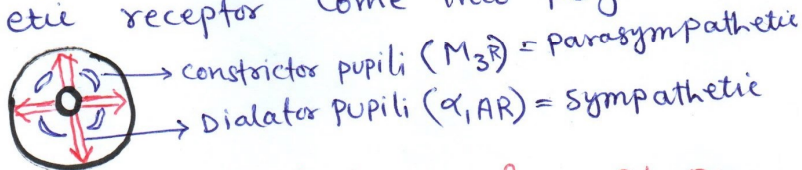 etic receptor come
constrictor pupili (M₃R) = parasympathetic
Dialator pupili (α,AR) = sympathetic